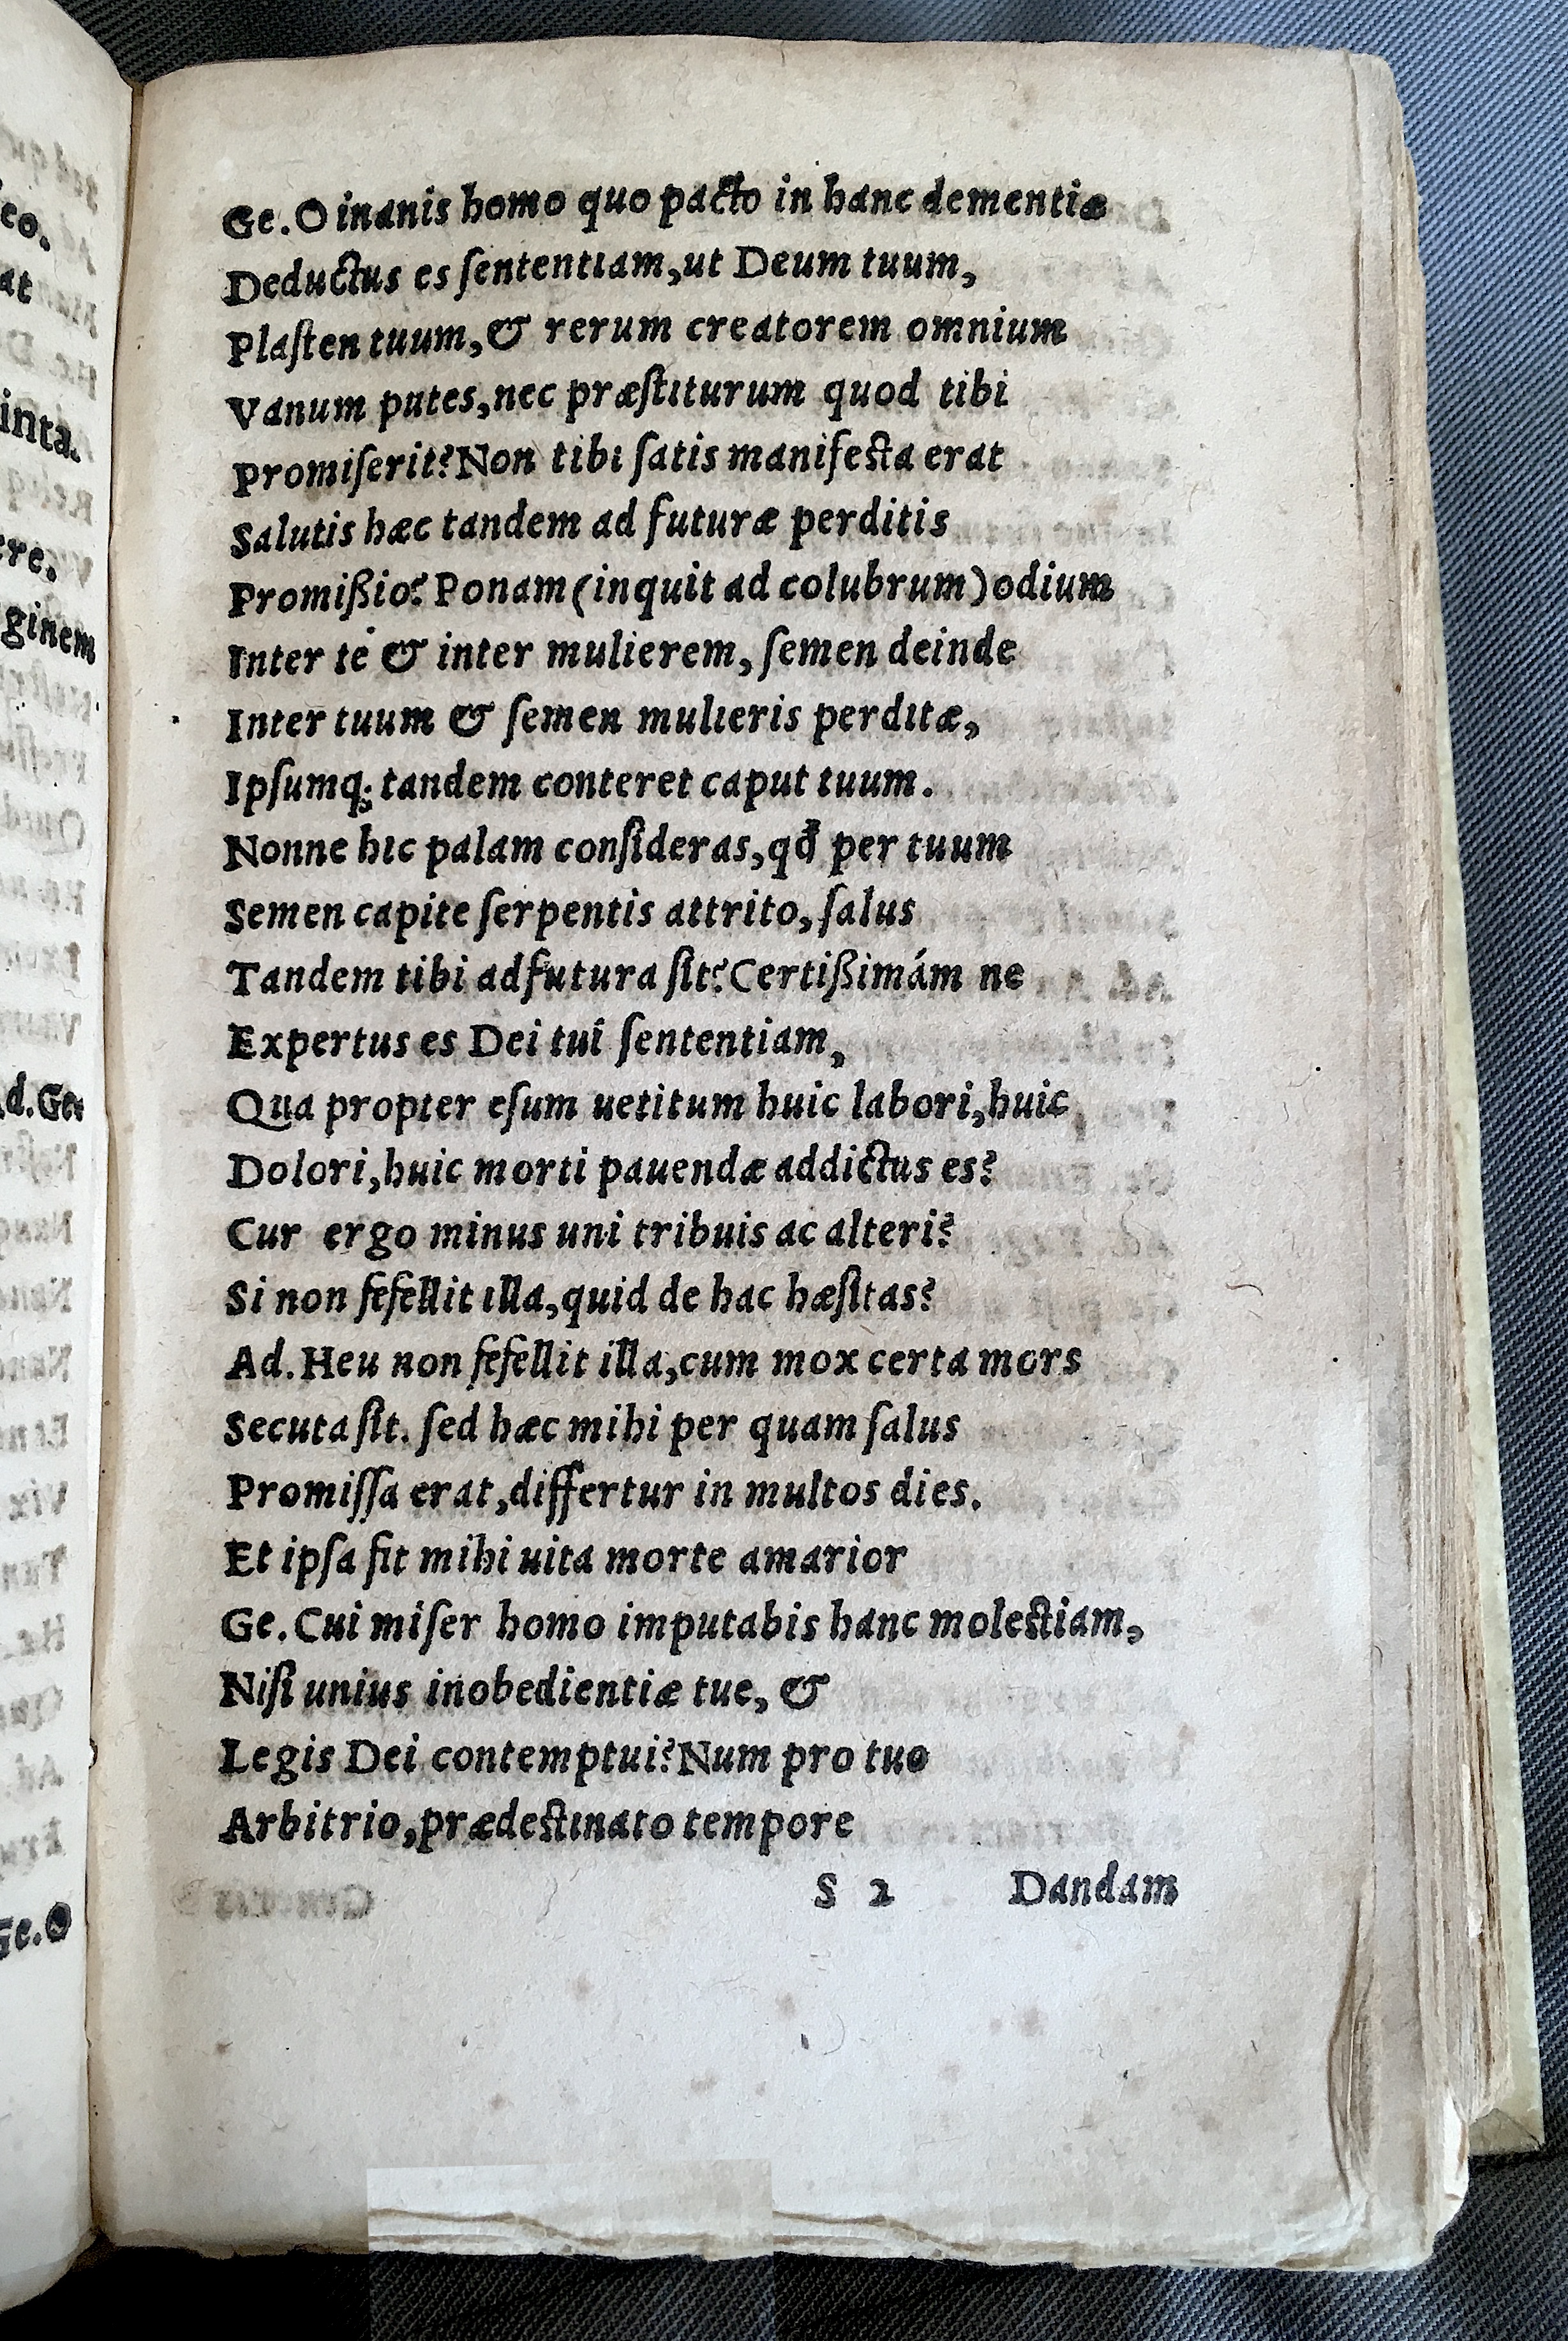 Ge. O inanis homo quo pacto in hanc dementiæ
Deductus es ſententiam, ut Deum tuum,
Plaſten tuum, & rerum creatorem omnium
Vanum putes, nec præſtiturum quod tibi
Promiſerit? Non tibi ſatis manifeſta erat
Salutis hæc tandem ad futuræ perditis
Promißio? Ponam (inquit ad colubrum) odium
Inter te & inter mulierem, ſemen deinde
Inter tuum & ſemen mulieris perditæ,
Ipſumq; tandem conteret caput tuum.
Nonne hic palam conſideras, qđ per tuum
Semen capite ſerpentis attrito, ſalus
Tandem tibi adfutura ſit? Certißimám ne
Expertus es Dei tui ſententiam,
Qua propter eſum uetitum huic labori, huic
Dolori, huic morti pauendæ addictus es?
Cur ergo minus uni tribuis ac alteri?
Si non fefellit illa, quid de hac hæſitas?
Ad. Heu non fefellit illa, cum mox certa mors
Secuta ſit. ſed hæc mihi per quam ſalus
Promiſſa erat, differtur in multos dies.
Et ipſa fit mihi uita morte amarior
Ge. Cui miſer homo imputabis hanc moleſtiam,
Niſi unius inobedientiæ tue, &
Legis Dei contemptui? Num pro tuo
Arbitrio, prædeſtinato tempore
S 2 Dandam
eo.
at
inta.
ere.
ginem
d. Ge.
Ge. O